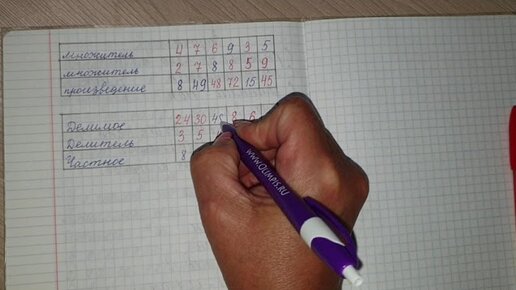 множитель 4 7 6 9 3 5
множитель 2 7 8 8 5 9
произведение 8 49 48 72 15 45
Делимое 24 30 45 8 6
Делитель 3 5
Частное 8
WWW.OLIMPIS.RU